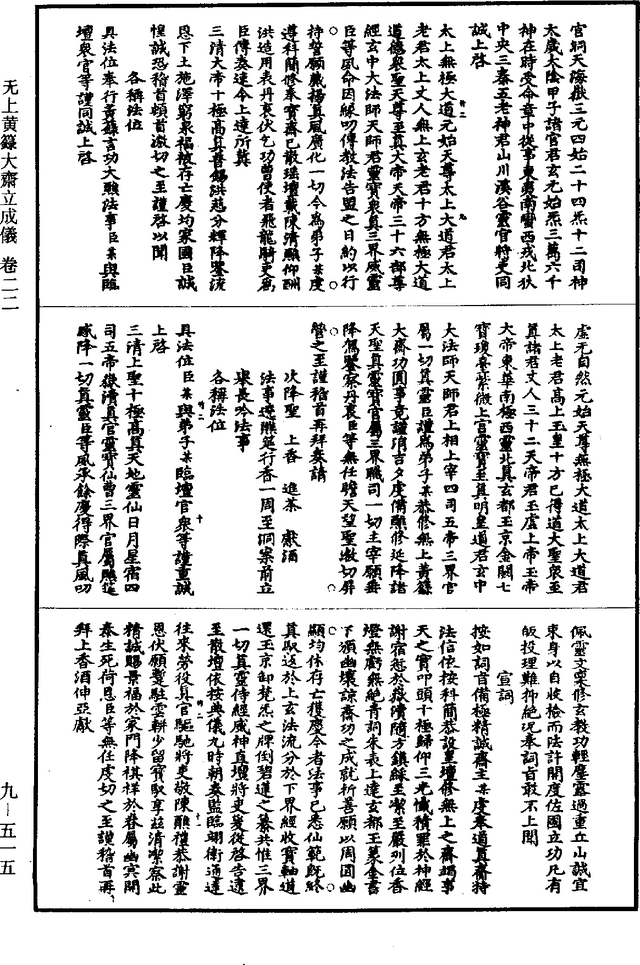 官洞天海嶽三元四始二十四炁十二司神
太歲太陰甲子諸官君玄元始炁三萬六千
神在時受命章中從事東夷南蠻西戎北狄
中央三秦五老神君山川溪谷靈官將吏同
誠上啓
太上無極大道元始天尊太上大道君太上
老君太上丈人無上玄老君十方無極大道
道德衆聖天尊至真大帝天帝三十六部尊
經玄中大法師天師君靈寶衆真三界威靈
臣等夙命因緣叨傳教法告盟之日約以行
持誓願處揚真風廣化一切今爲弟子某虔
遵科簡修奉寶齋已散瑶壇載陳清醮仰酬
洪造用表丹衷伏乞功曹使者飛龍騎吏爲
臣傳奏逮令上達所冀
三清大帝十極高真普錫洪慈分輝降鑒流
恩下土施澤窮泉福被存亡慶均家國臣誠
惶誠恐稽首頓首激切之至謹啓以聞
各稱法位
具法位奉行黃籙言功大醮法事臣某與臨
壇衆官等謹同誠上啓
虛无自然元始天尊無極大道太上大道君
太上老君高上玉皇十方已得道大聖衆至
真諸君丈人三十二天帝君玉虛上帝玉帝
大帝東華南極西靈北真玄都玉京金闕七
寶瓊臺紫微上宮靈寶至真明皇道君玄中
大法師天師君上相上宰四司五帝三界官
屬一切真靈臣謹爲弟子某恭修無上黃籙
大齋功圓事竟謹涓吉夕虔備醮修延降諸
天聖真靈寶官屬三界職司一切主宰願垂
降駕鑒察丹衷臣等無任瞻天望聖激切屏
營之至謹稽首再拜奏請
次降聖 上香 進茶 獻酒
法事遶醮筵行香一周至洞案前立
舉長吟法事
各稱法位
具法位臣某與弟子某臨壇官衆等謹重誠
上啓
三清上聖十極高真天地靈仙日月星宿四
司五帝嶽瀆真官靈寶仙曹三界官屬醮筵
咸降一切真靈臣等夙承餘慶得際真風叨
佩靈文累修玄教功輕塵露過重丘山誠宜
束身以自收檢而法許開度佐國立功凡有
皈投理難抑絶况奉詞首敢不上聞
宣詞
按如詞首備極精誠齋主某虔奉道真齋持
法信依按科簡恭設重壇修無上之齋竭事
天之實叩頭十極歸仰三元懺積罪於神經
謝宿愆於嶽瀆隨方鎮綵至潔至嚴列位香
燈無虧無絶青詞朱表上達玄都玉篆金書
下頒幽壤諒齋功之成就祈善願以周圓幽
顯均休存亡獲慶今者法事已悉仙範旣終
真馭返於上玄法流分於下界經收寶軸道
還玉京卸梵炁之牌倒碧蓮之纂共惟三界
一切真靈侍經威神直壇將吏爰從啓告逮
至散壇依按典儀九時朝奏監臨翊衛通達
往來勞役具官驅馳將吏敬陳醮禮恭謝靈
恩伏願蹔駐雲軿少留寶馭享兹清潔察此
精誠賜景福於家門降祺祥於眷屬幽冥開
泰生死荷恩臣等無任虔切之至謹稽首再
拜上香酒伸亞獻
无上黄籙大齋立成儀 卷二二
九—五一五